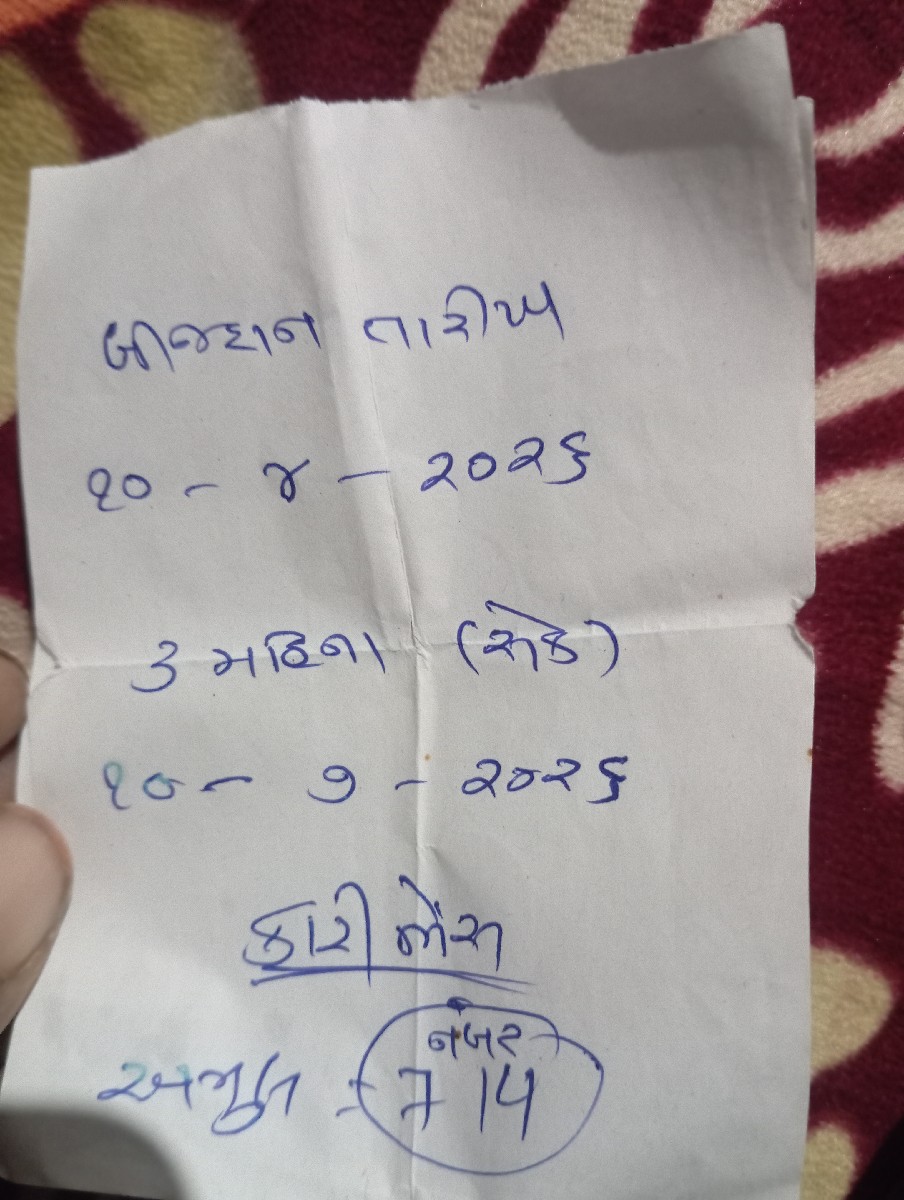 બીજદાન તારીખ
૧૦ - ૪ - ૨૦૨૬
૩ મહિના (ચેક)
૧૦ - ૭ - ૨૦૨૬
ભેંસ
નંબર
અમુલ = 714